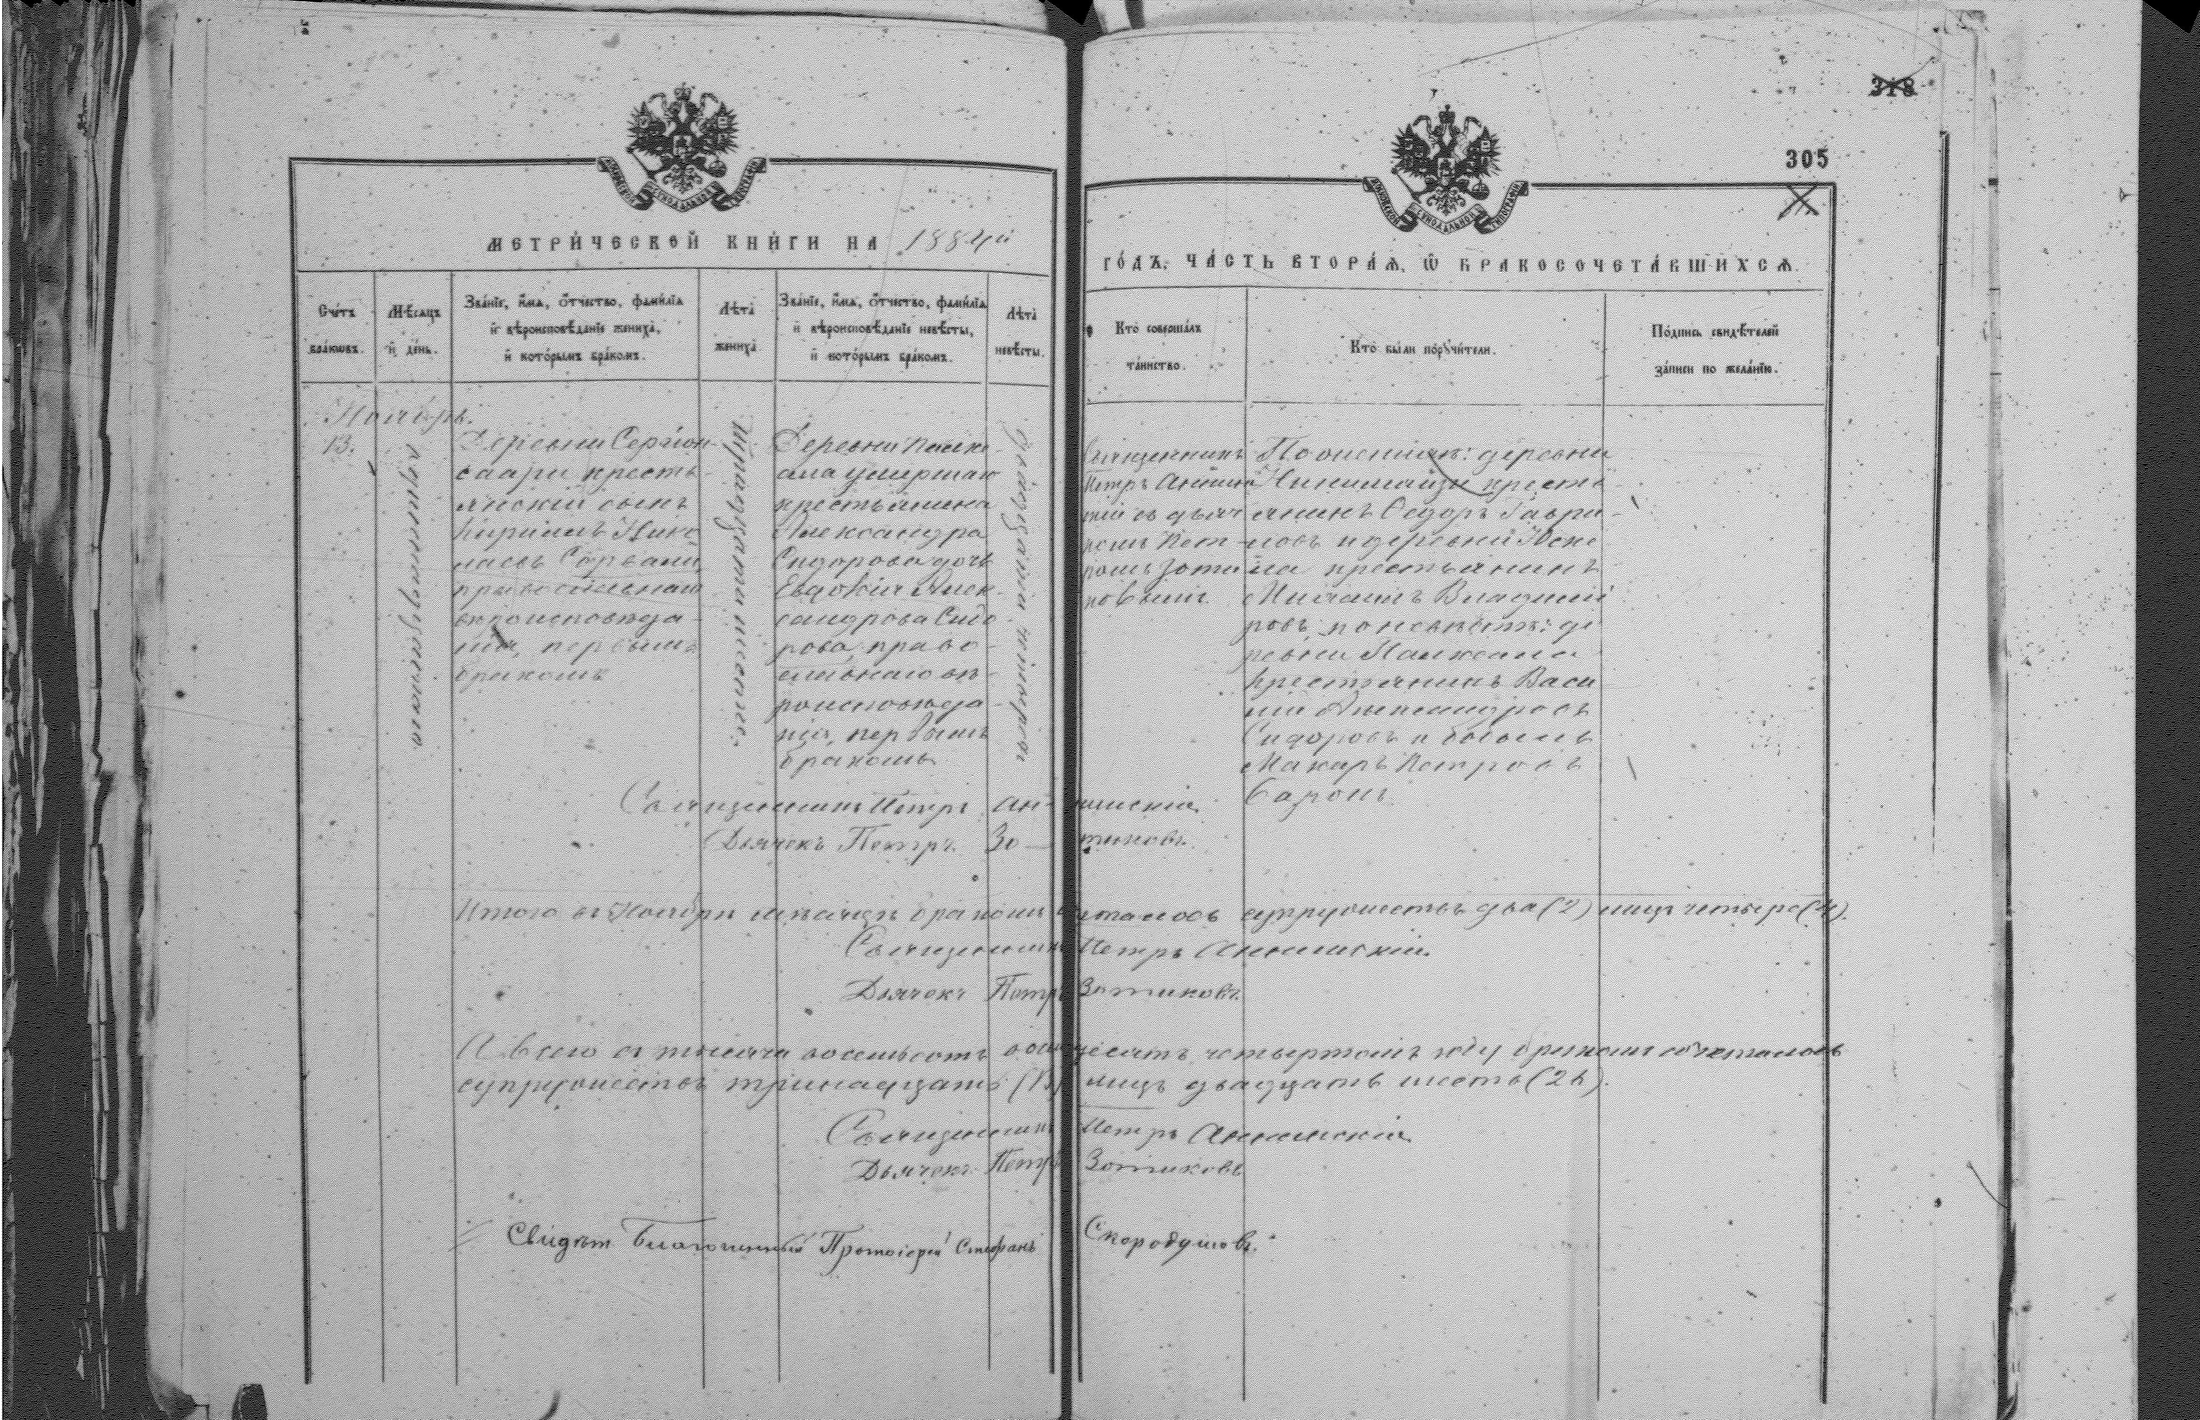 318
305
МЕТРИ́ЧЕСКОЙ КНИ́ГИ НА 1884й
ГО́ДЪ, ЧА́СТЬ ВТОРА́Я, Ѡ БРАКОСОЧЕТА́ВШИХСЯ.
Сче́тъ бра́ковъ.
Мѣ́сяцъ и де́нь.
Зва́нїе, и́мя, о́тчество, фами́лїя и вѣроисповѣ́данїе жениха́, и кото́рымъ бра́комъ.
Лѣта̀ жениха̀
Зва́нїе, и́мя, о́тчество, фами́лїя и вѣроисповѣ́данїе невѣ́сты, и кото́рымъ бра́комъ.
Лѣта̀ невѣ́сты.
Кто̀ соверша́лъ та́инство.
Кто̀ бы́ли пору́чители.
По́дпись свидѣ́телей за́писи по жела́нїю.
Ноябрь.
13.
одиннадцатаго
Деревни Сергіон-
саари кресть-
янскій сынъ
Кириллъ Нико-
лаевъ
православнаго
вѣроисповѣда-
нія, первымъ
бракомъ
Тридцати шести.
Деревни
умершаго
крестьянина
Александра
Сидорова дочь
Евдокія Алек-
сандрова Сидо-
рова, право-
славнаго вѣ-
роисповѣда-
нія, первымъ
бракомъ
двадцати четырехъ
Священникъ
Петръ Аннин-
скій съ дьяч-
комъ Пет-
ромъ Зоти-
ковымъ.
По женихѣ: деревни
кресть-
янинъ Ѳедоръ Гаври-
ловъ и деревни
крестьянинъ
Михаилъ Владимі-
ровъ, по невѣстѣ: де-
ревни
крестьянинъ Васи-
лій Александровъ
Сидоровъ и
Макаръ Петровъ
Священникъ Петръ Аннинскій
Дьячекъ Петръ Зотиковъ.
Итого въ Ноябрѣ мѣсяцѣ бракомъ сочеталось супружествъ два (2) лицъ четыре (4).
Священникъ Петръ Аннинскій.
Дьячекъ Петръ Зотиковъ.
А всего въ тысяча восемьсотъ восемьдесятъ четвертомъ году бракомъ сочеталось
супружествъ тринадцать (13) лицъ двадцать шесть (26).
Священникъ Петръ Аннинскій
Дьячекъ Петръ Зотиковъ
Свидѣт Благочинный Протоіерей Стефанъ Скородумовъ.